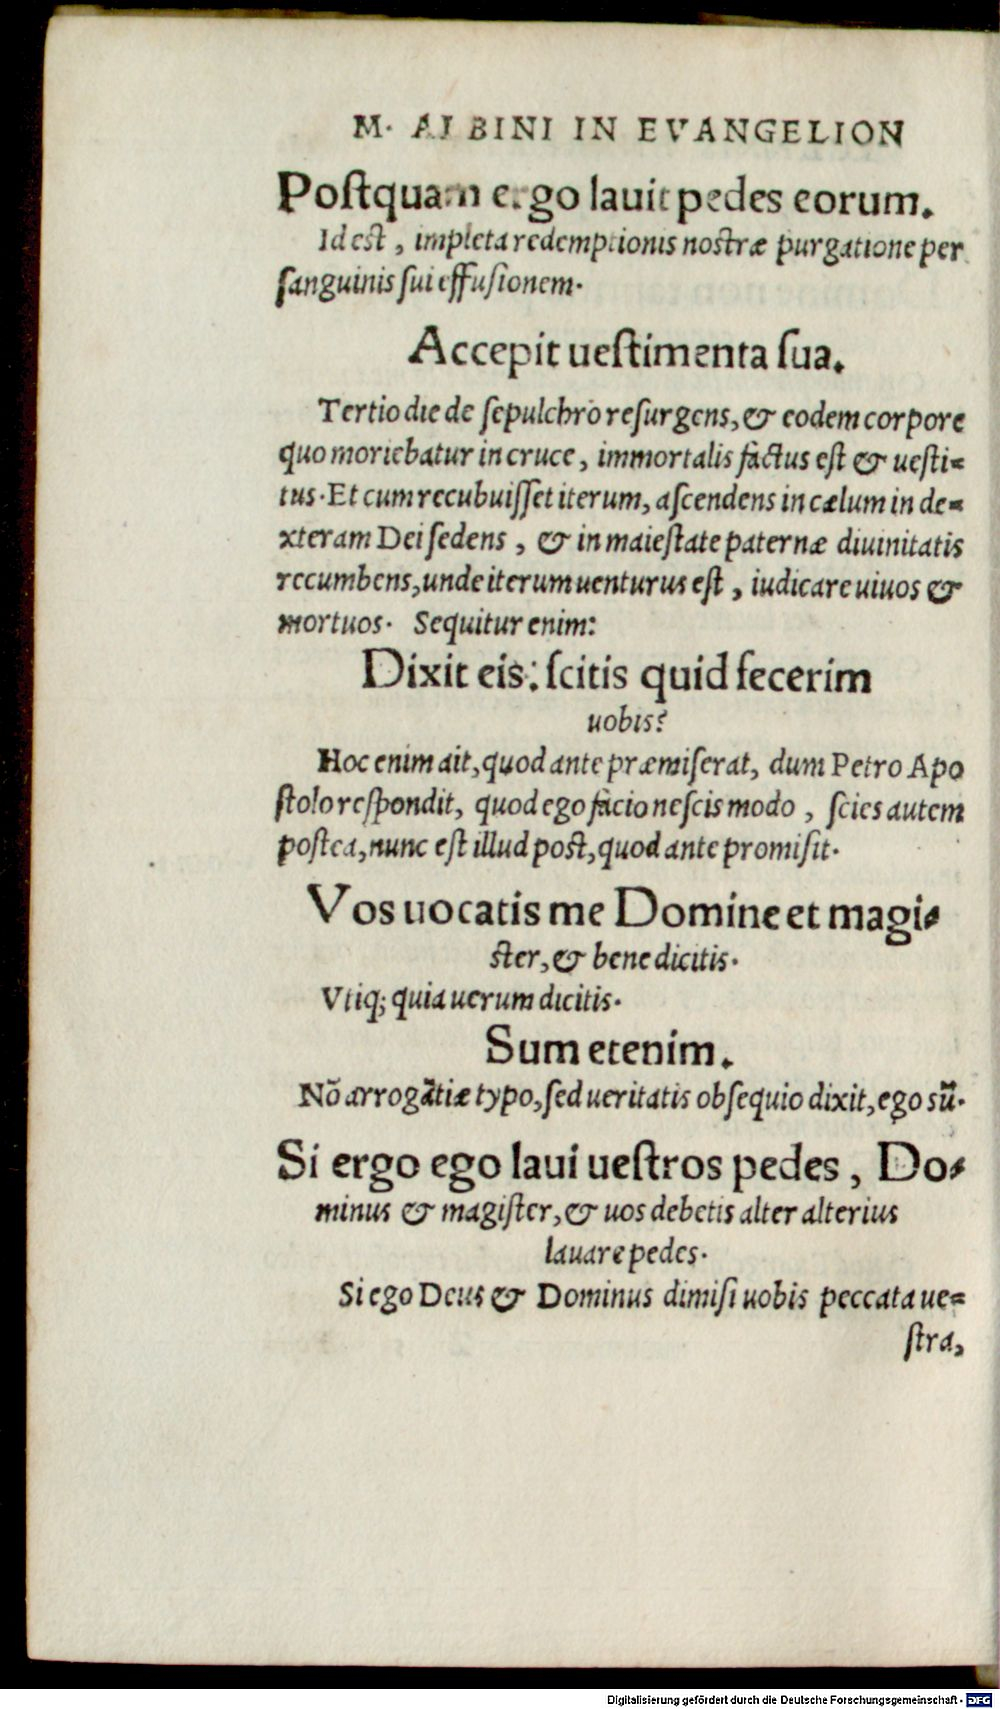 M. ALBINI IN EVANGELION
Poſtquam ergo lauit pedes eorum.
Id eſt, impleta redemptionis noſtræ purgatione per
ſanguinis ſui effuſionem.
Accepit ueſtimenta ſua.
Tertio die de ſepulchro reſurgens, & eodem corpore
quo moriebatur in cruce, immortalis factus eſt & ueſti=
tus. Et cum recubuiſſet iterum, aſcendens in cælum in de=
xteram Dei ſedens, & in maieſtate paternæ diuinitatis
recumbens, unde iterum uenturus eſt, iudicare uiuos &
mortuos. Sequitur enim:
Dixit eis: ſcitis quid fecerim
uobis?
Hoc enim ait, quod ante præmiſerat, dum Petro Apo
ſtolo reſpondit, quod ego facio neſcis modo, ſcies autem
poſtea, nunc eſt illud poſt, quod ante promiſit.
Vos uocatis me Domine et magi-
ſter, & bene dicitis.
Vtiq; quia uerum dicitis.
Sum etenim.
Nō arrogātiæ typo, ſed ueritatis obſequio dixit, ego sū.
Si ergo ego laui ueſtros pedes, Do-
minus & magiſter, & uos debetis alter alterius
lauare pedes.
Si ego Deus & Dominus dimiſi uobis peccata ue=
ſtra,
Digitalisierung gefördert durch die Deutsche Forschungsgemeinschaft - DFG